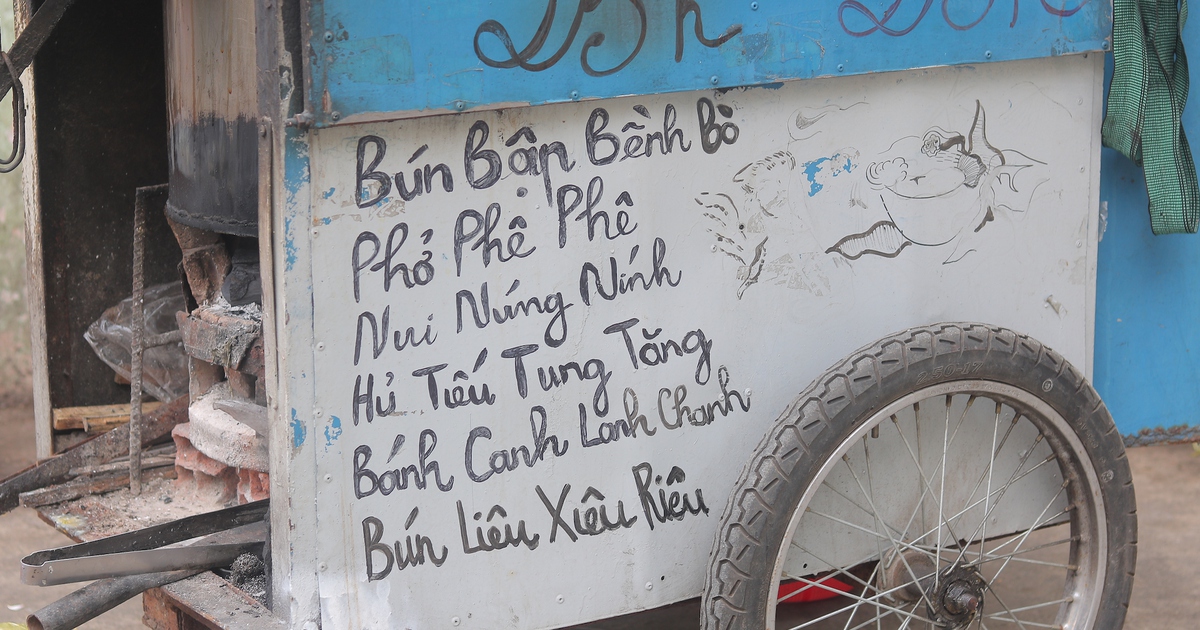 Bún Bận Bềnh Bò
Phở Phê Phê
Nui Núng Nính
Hủ Tiếu Tung Tăng
Bánh Canh Lanh Chanh
Bún Liêu Xiêu Riêu